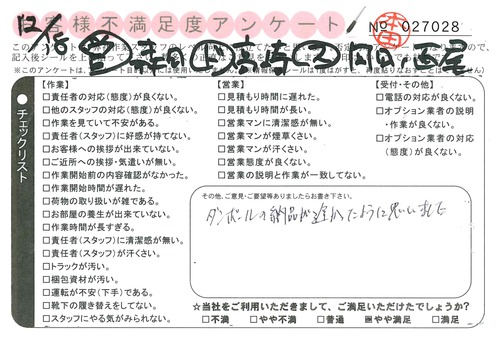 お客様不満足度アンケート
No 027028
12/6
チェックリスト
【作業】
□責任者の対応(態度)が良くない。
□他のスタッフの対応(態度)が良くない。
□作業を見ていて不安がある。
□責任者(スタッフ)に好感が持てない。
□お客様への挨拶が出来ていない。
□ご近所への挨拶・気遣いが無い。
□作業開始前の内容確認がなかった。
□作業開始時間が遅れた。
□荷物の取り扱いが雑である。
□お部屋の養生が出来ていない。
□作業時間が長すぎる。
□責任者(スタッフ)に清潔感が無い。
□責任者(スタッフ)が汗くさい。
□トラックが汚い。
□梱包資材が汚い。
□運転が不安(下手)である。
□靴下の履き替えをしてない。
□スタッフにやる気がみられない。
【営業】
□見積もり時間に遅れた。
□見積もり時間が長い。
□営業マンに清潔感が無い。
□営業マンが煙草くさい。
□営業マンが汗くさい。
□営業態度が良くない。
□営業の説明と作業が一致してない。
【受付・その他】
□電話の対応が良くない。
□オプション業者の説明
・作業が良くない。
□オプション業者の対応
(態度)が良くない。
その他、ご意見・ご要望等ありましたらお書き下さい。
ダンボールの納品が遅かったように思いました
☆当社をご利用いただきまして、ご満足いただけたでしょうか?
□不満 □やや不満 □普通 ☑やや満足 □満足